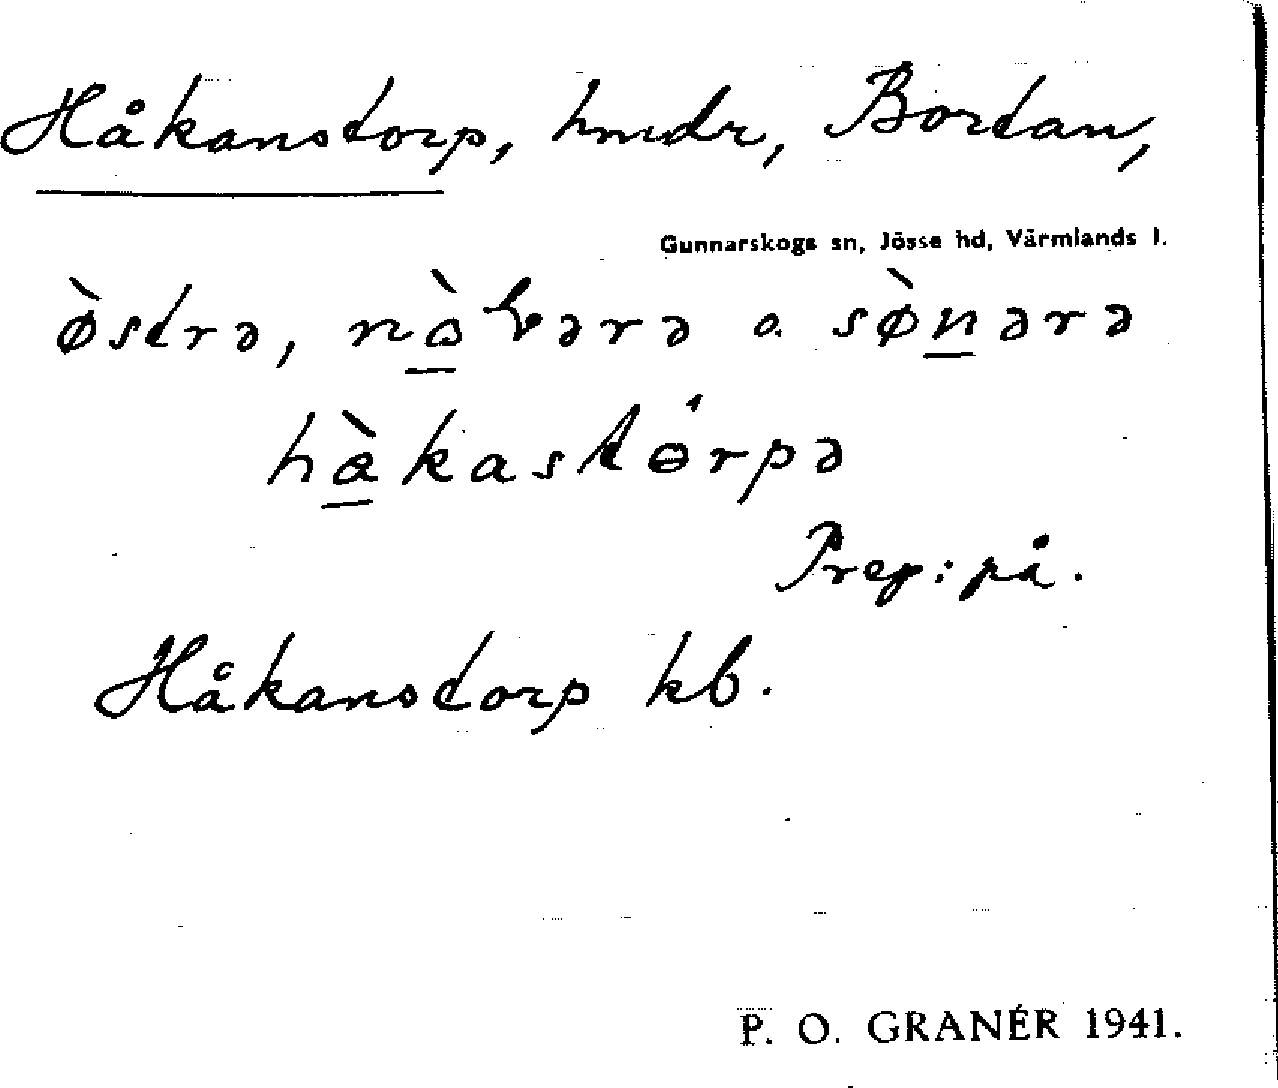 Håkanstorp, hmdr, Bortan,
Gunnarskogs sn, Jösse hd, Värmlands l.
ø̀strə, nòɽərə o. sø̀nərə
hòkastɵ́rpə
Prep: på.
Håkanstorp kb.
P. O. GRANÉR 1941.